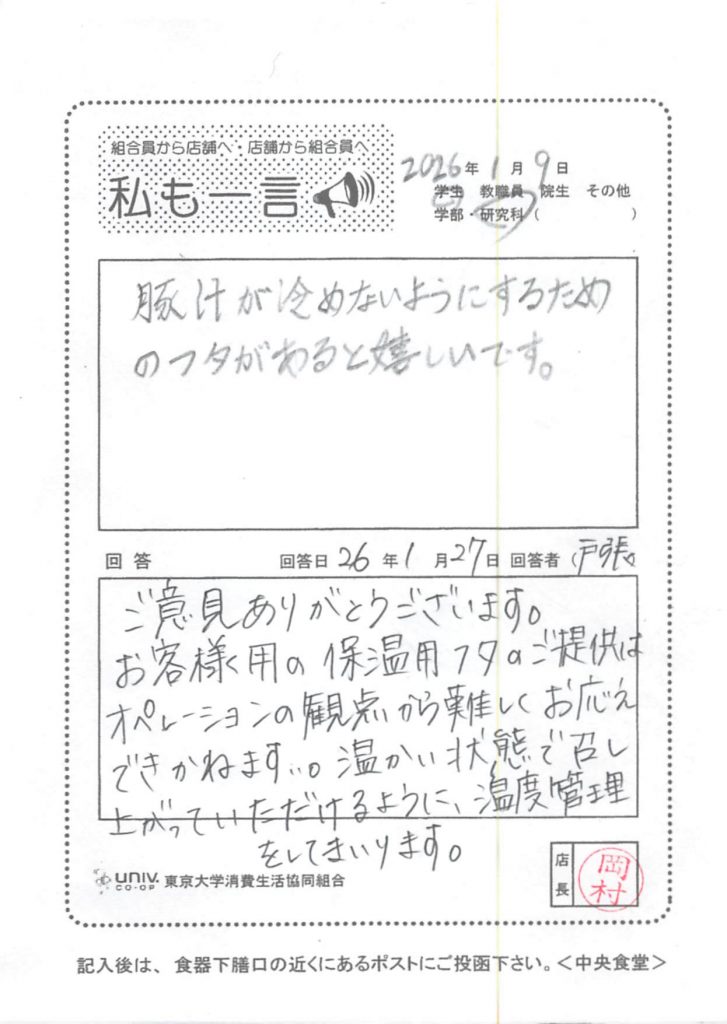 組合員から店舗へ・店舗から組合員へ
私も一言
2026年1月9日
学生 教職員 院生 その他
学部・研究科( )
豚汁が冷めないようにするため
のフタがあると嬉しいです。
回答 回答日26年1月27日 回答者 戸張
ご意見ありがとうございます。
お客様用の保温用フタのご提供は
オペレーションの観点から難しくお応え
できかねます…。温かい状態で召し
上がっていただけるように、温度管理
をしてまいります。
UNIV. CO-OP 東京大学消費生活協同組合
店長 岡村
記入後は、食器下膳口の近くにあるポストにご投函下さい。<中央食堂>